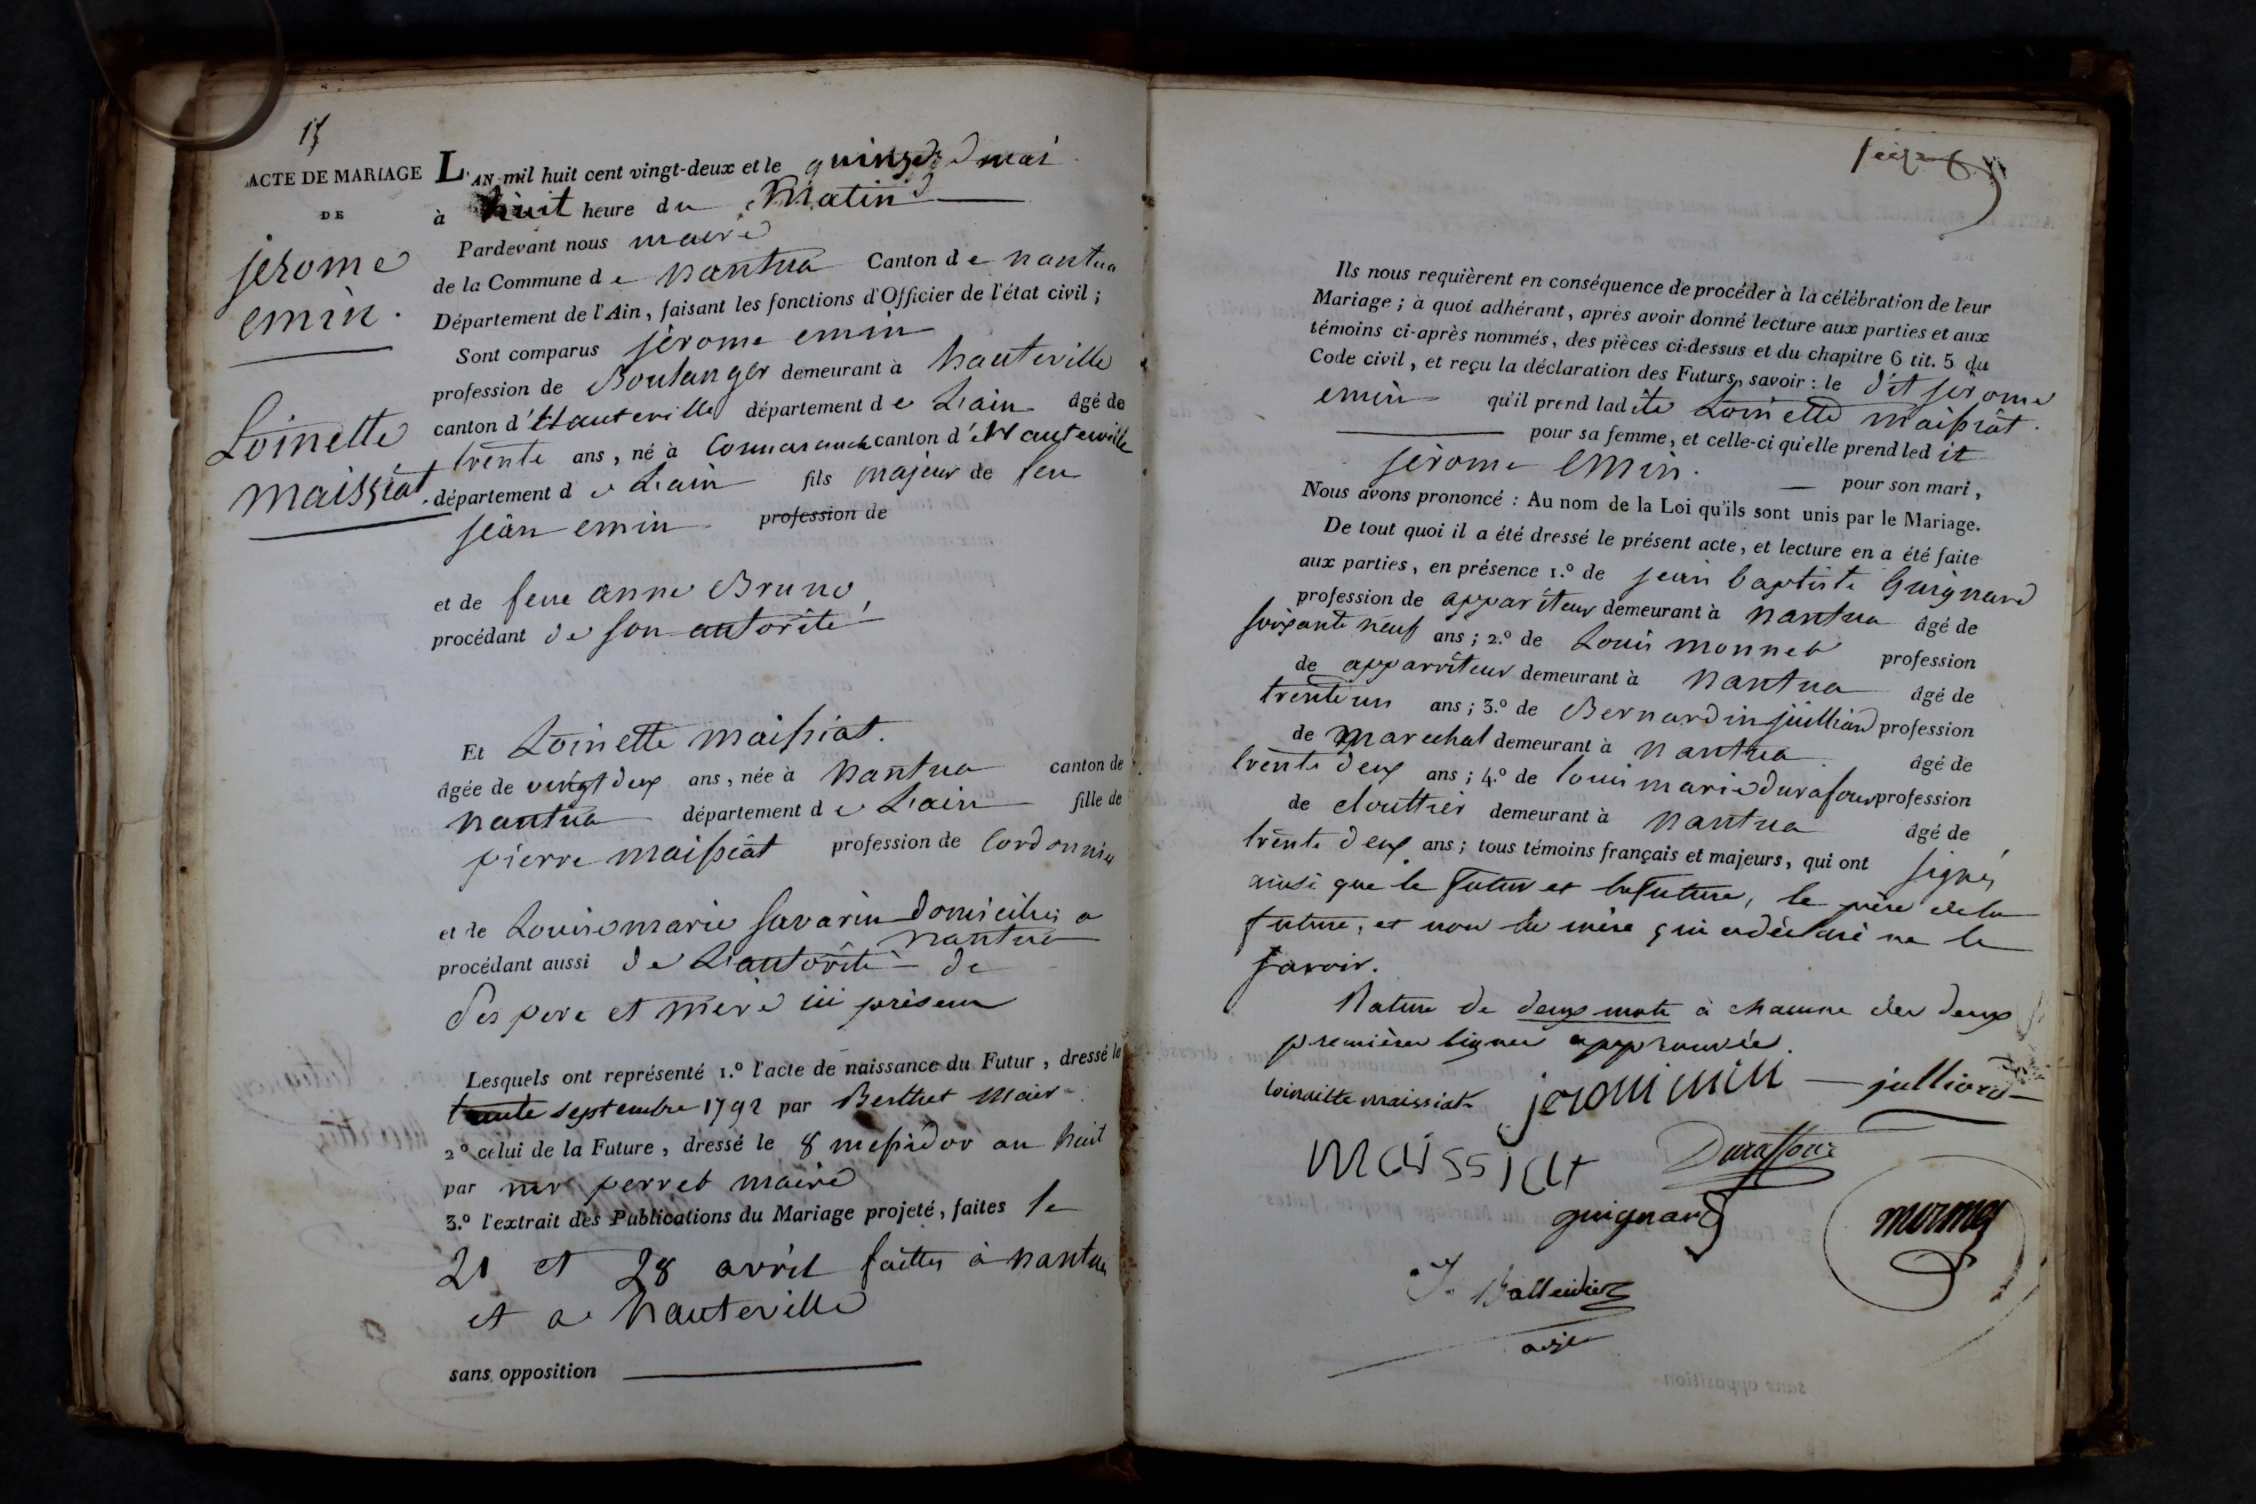 15
ACTE DE MARIAGE
DE
jerome
emin.
Loinette
maissiat.
L'AN mil huit cent vingt-deux et le quinze de mai
à huit heure du Matin
Pardevant nous maire
de la Commune de nantua Canton de nantua
Département de l'Ain, faisant les fonctions d'Officier de l'état civil;
Sont comparus jérome emin
profession de Boulanger demeurant à hauteville
canton d'hauteville département de L'ain âgé de
trente ans, né à canton d'hauteville
département de L'ain fils majeur de feu
jean emin profession de
et de feue anne Bruno,
procédant de son autorité
Et Loinette maissiat.
âgée de vingt deux ans, née à nantua canton de
nantua département de L'ain fille de
pierre maissiat profession de Cordonnier
et de Louise marie Savarin domiciliés a
nantua
procédant aussi de L'autorité de
ses pere et mère ici présents
Lesquels ont représenté 1.º l'acte de naissance du Futur, dressé le
trente septembre 1792 par Berthet Maire
2º celui de la Future, dressé le 8 messidor an huit
par mr perret maire
3.º l'extrait des Publications du Mariage projeté, faites le
21 et 28 avril faittes à nantua
et a hauteville
sans opposition
Ils nous requièrent en conséquence de procéder à la célébration de leur
Mariage; à quoi adhérant, après avoir donné lecture aux parties et aux
témoins ci-après nommés, des pièces ci-dessus et du chapitre 6 tit. 5 du
Code civil, et reçu la déclaration des Futurs, savoir: le dit jérome
emin qu'il prend ladite Loinette maissiat.
pour sa femme, et celle-ci qu'elle prend ledit
jérome emin. pour son mari,
Nous avons prononcé: Au nom de la Loi qu'ils sont unis par le Mariage.
De tout quoi il a été dressé le présent acte, et lecture en a été faite
aux parties, en présence 1.º de jean baptiste Guignard
profession de appariteur demeurant à nantua âgé de
soixante neuf ans; 2.º de Louis monnet profession
de apparriteur demeurant à nantua âgé de
trente un ans; 3.º de Bernardin juilliard profession
de marechal demeurant à nantua. âgé de
trente deux ans; 4.º de louis marie durafour profession
de clouttier demeurant à nantua âgé de
trente deux ans; tous témoins français et majeurs, qui ont signés
ainsi que le futur et la future, le père de la
future, et non la mère qui a déclaré ne le
savoir.
Rature de deux mots à chacune des deux
premières lignes approuvée.
loinaitte maissiat jeromi min julliard
maissiat Duraffour
guignard monnet
J. Ballleidier
adjt